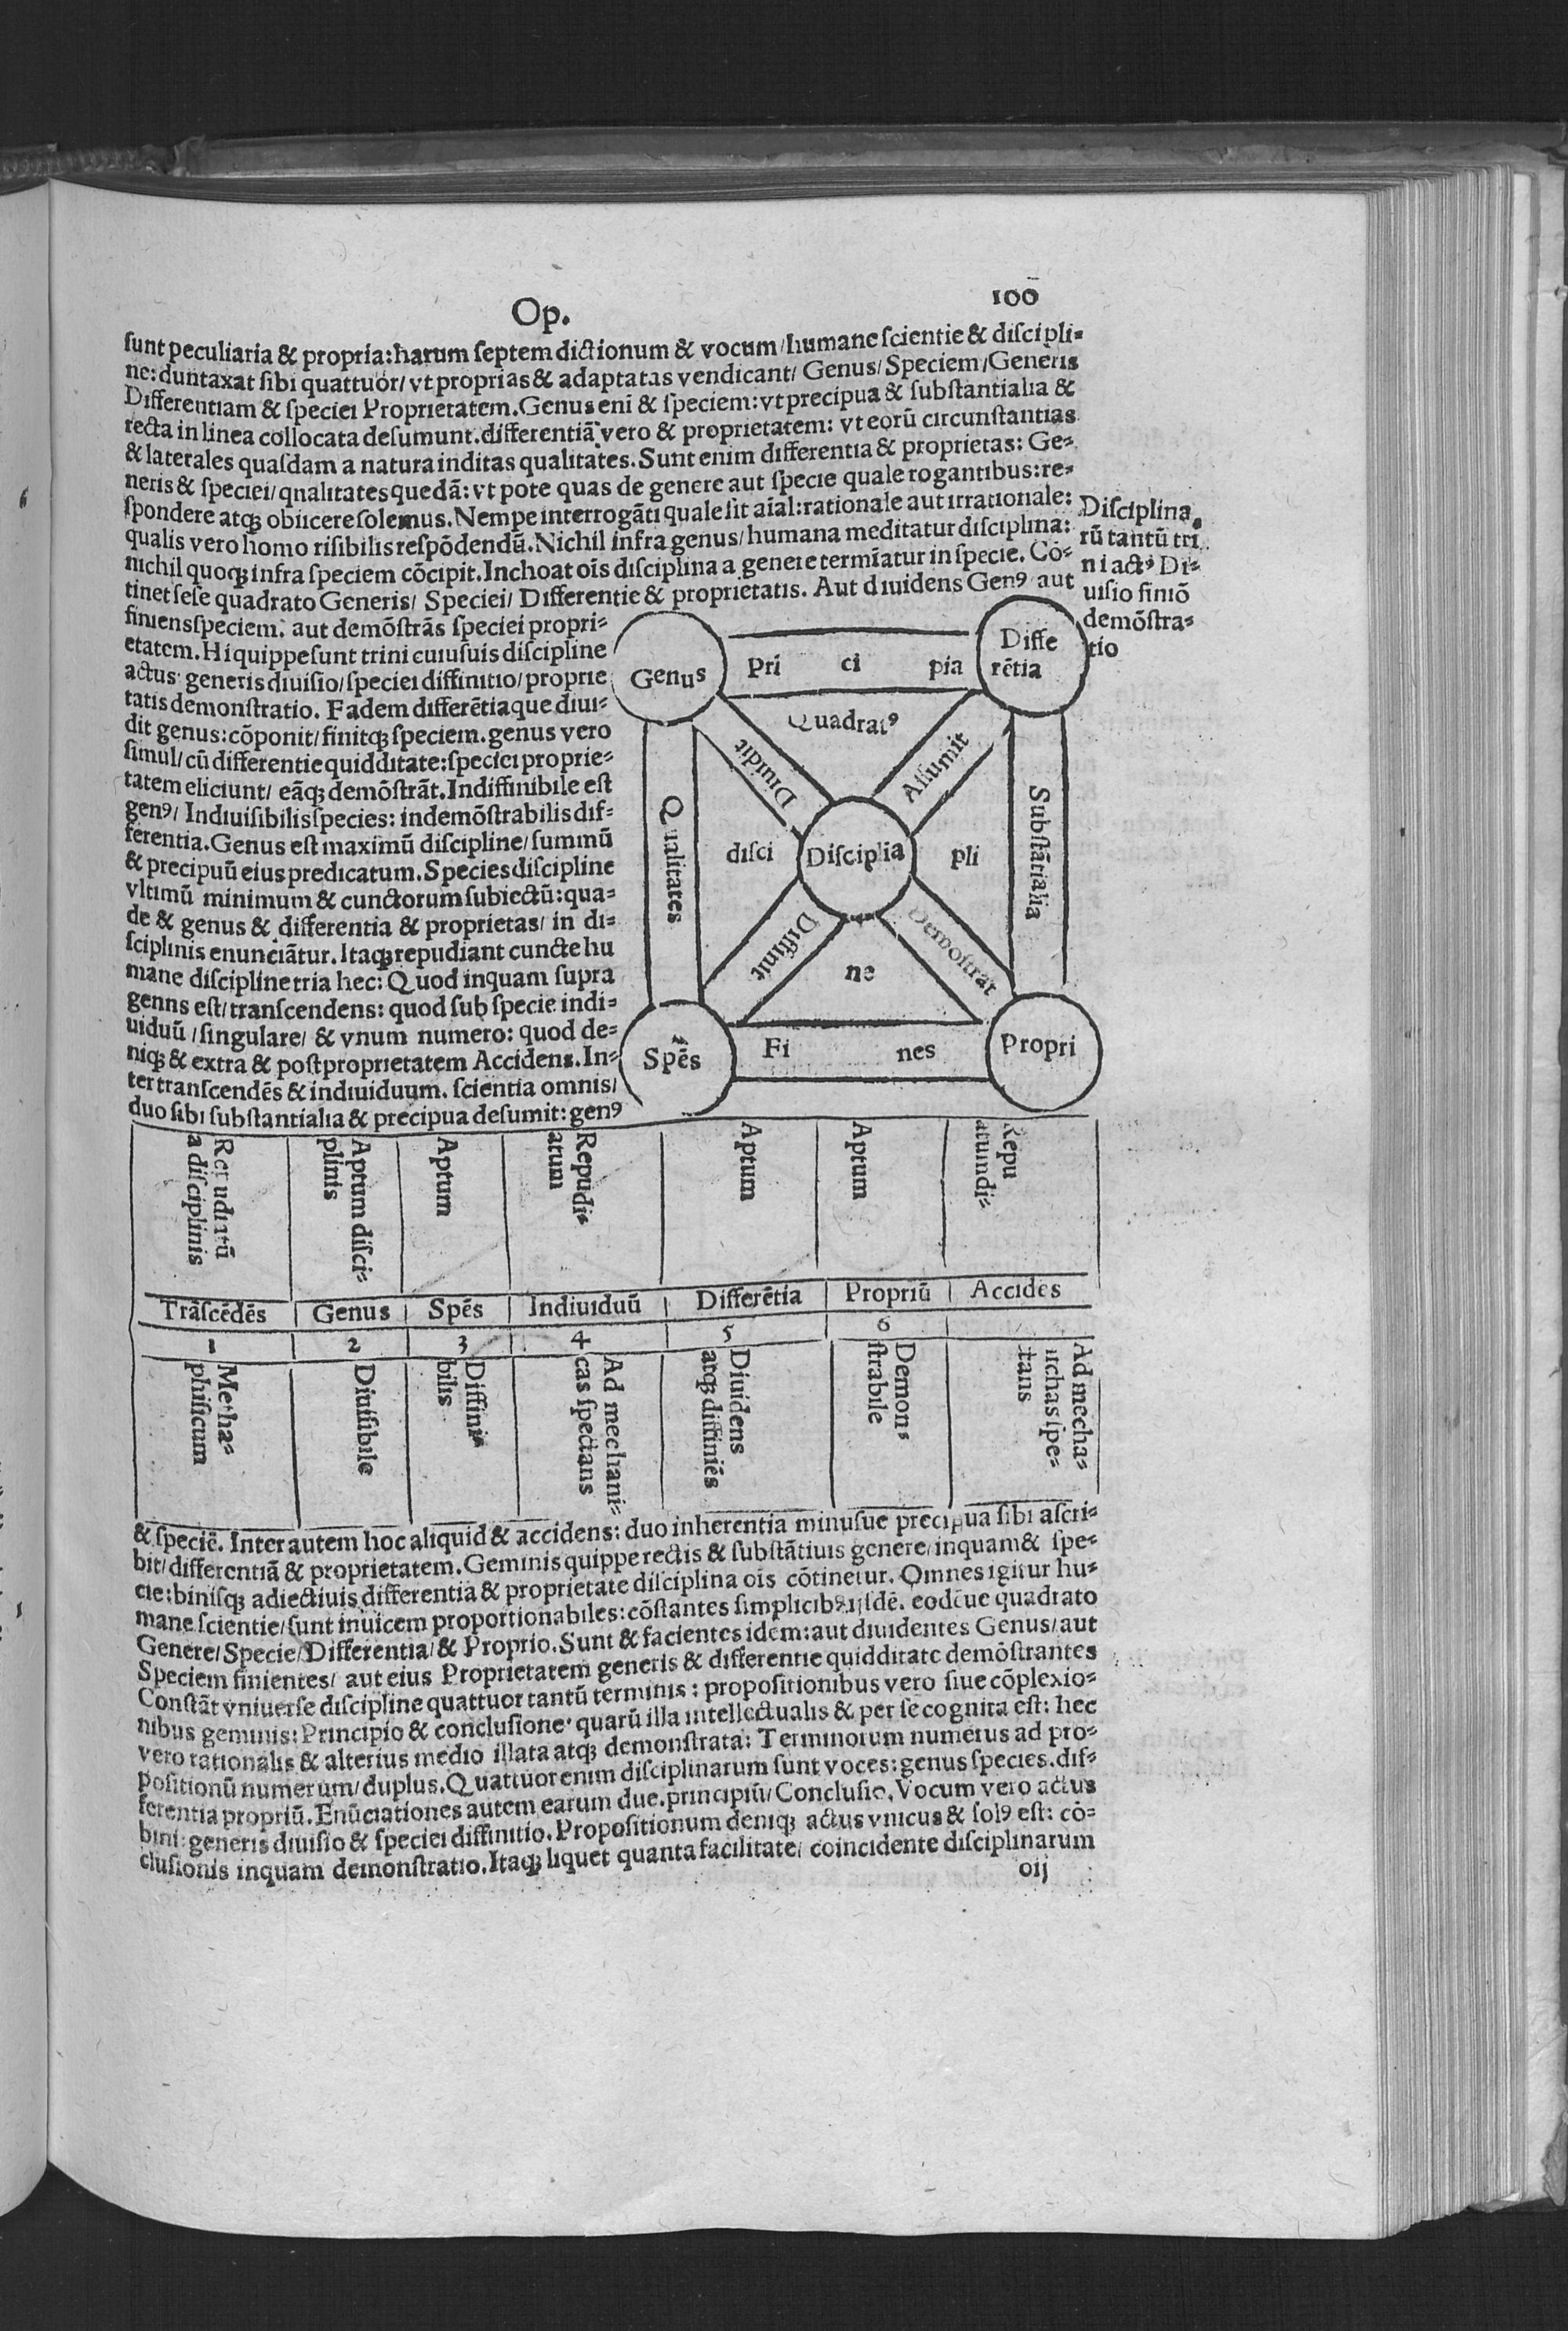 Op.
100
sunt peculiaria & propria: harum septem dictionum & vocum/humane scientie & discipli-
ne: duntaxat sibi quattuor/ vt proprias & adaptatas vendicant/ Genus/Speciem/Generis
Differentiam & speciei Proprietatem. Genus eni & speciem: vt precipua & substantialia &
recta in linea collocata desumunt. differentiā vero & proprietatem: vt eorū circunstantias
& laterales quasdam a natura inditas qualitates. Sunt enim differentia & proprietas: Ge-
neris & speciei/ qnalitates quedā: vt pote quas de genere aut specie quale rogantibus: re-
spondere atqꝫ obiicere solemus. Nempe interrogāti quale sit aīal: rationale aut irrationale:
qualis vero homo risibilis respōdendū. Nichil infra genus/humana meditatur disciplina:
nichil quoqꝫ infra speciem cōcipit. Inchoat oīs disciplina a genere termīatur in specie. Cō-
tinet sese quadrato Generis/ Speciei/ Differentie & proprietatis. Aut diuidens Genꝰ aut
Disciplina
rū tantū tri
ni actꝰ Di-
uisio finiō
demōstra-
tio
finiens speciem. aut demōstrās speciei propri-
etatem. Hi quippe sunt trini cuiusuis discipline
actus: generis diuisio/speciei diffinitio/proprie
tatis demonstratio. Eadem differētia que diui-
dit genus: cōponit/finitqꝫ speciem. genus vero
simul/cū differentie quidditate: speciei proprie-
tatem eliciunt/ eāqꝫ demōstrāt. Indiffinibile est
genꝰ/ Indiuisibilis species: indemōstrabilis dif-
ferentia. Genus est maximū discipline/summū
& precipuū eius predicatum. Species discipline
vltimū minimum & cunctorum subiectū: qua-
de & genus & differentia & proprietas/ in di-
sciplinis enunciātur. Itaqꝫ repudiant cuncte hu
mane discipline tria hec: Quod inquam supra
genns est/transcendens: quod sub specie indi-
uiduū/singulare/ & vnum numero: quod de-
niqꝫ & extra & post proprietatem Accidens. In-
ter transcendēs & indiuiduum. scientia omnis/
duo sibi substantialia & precipua desumit: genꝰ
Genus
Pri ci pia
Diffe
rētia
Quadratꝰ
Diuidit
Assumit
Qualitates
disci
Disciplia
pli
Substātialia
Diffinit
ne
Demostrat
Spēs
Fi nes
Propri
Repudiatū
a disciplinis
Aptum disci-
plinis
Aptum
Repudi-
atum
Aptum
Aptum
Trāscēdēs Genus Spēs Indiuiduū Differētia Propriū Accides
1 2 3 4 5 6
Metha-
phisicum
Diuisibile
Diffini-
bilis
Ad mechani-
cas spectans
Diuidens
atqꝫ diffiniēs
Demon-
strabile
Ad mecha-
tans
& speciē. Inter autem hoc aliquid & accidens: duo inherentia minusue precipua sibi ascri-
bit/differentiā & proprietatem. Geminis quippe rectis & substātiuis genere/inquam & spe-
cie: binisqꝫ adiectiuis differentia & proprietate disciplina oīs cōtinetur. Omnes igitur hu-
mane scientie/sunt inuicem proportionabiles: cōstantes simplicibꝰ iisdē. eodēue quadrato
Genere/Specie/Differentia/& Proprio. Sunt & facientes idem: aut diuidentes Genus/aut
Speciem finientes/ aut eius Proprietatem generis & differentie quidditate demōstrantes
Constāt vniuerse discipline quattuor tantū terminis: propositionibus vero siue cōplexio-
nibus geminis: Principio & conclusione. quarū illa intellectualis & per se cognita est: hec
vero rationalis & alterius medio illata atqꝫ demonstrata: Terminorum numerus ad pro-
positionū numerum/duplus. Quattuor enim disciplinarum sunt voces: genus species. dif-
ferentia propriū. Enūciationes autem earum due. principiū/Conclusio. Vocum vero actus
bini: generis diuisio & speciei diffinitio. Propositionum deniqꝫ actus vnicus & solꝰ est: cō-
clusionis inquam demonstratio. Itaqꝫ liquet quanta facilitate/ coincidente disciplinarum
oij